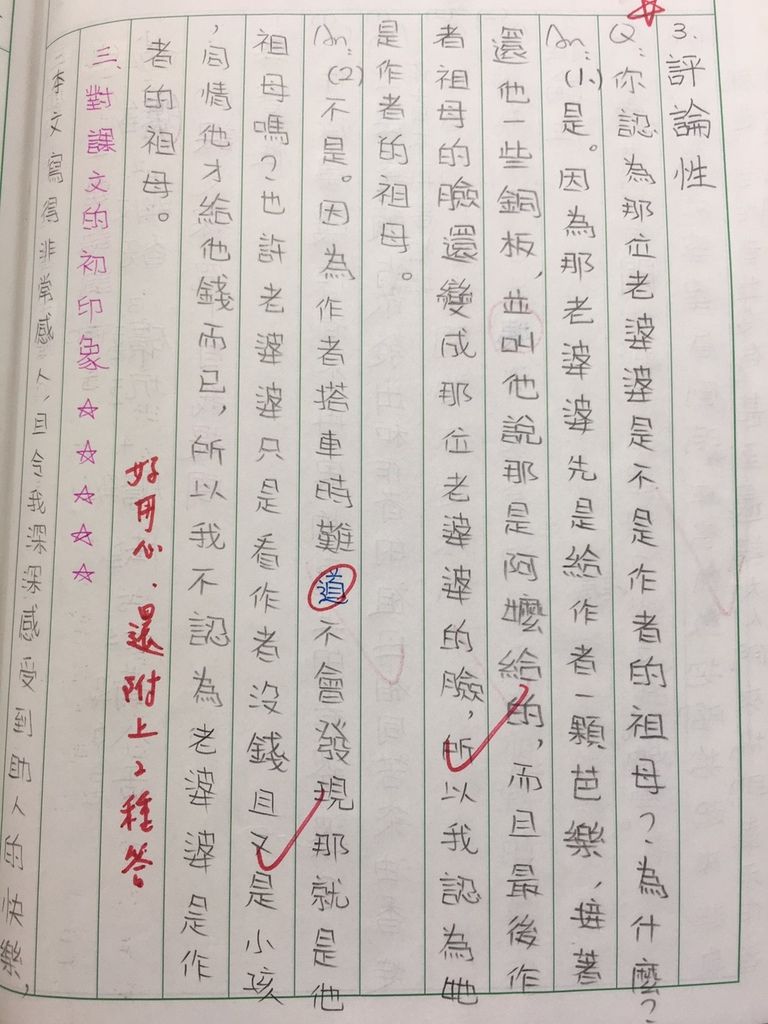 3. 評論性
Q:你認為那位老婆婆是不是作者的祖母？為什麼？
An:(1.)是。因為那老婆婆先是給作者一顆芭樂，接著
還他一些銅板，並叫他說那是阿嬤給的，而且最後作
者祖母的臉還變成那位老婆婆的臉，所以我認為她
是作者的祖母。
An:(2)不是。因為作者搭車時難道不會發現那就是他
祖母嗎？也許老婆婆只是看作者沒錢且又是小孩
，同情他才給他錢而已，所以我不認為老婆婆是作
者的祖母。
好用心．還附上2種答。
三、對課文的初印象☆☆☆☆☆
李文寫得非常感人，且令我深深感受到助人的快樂，